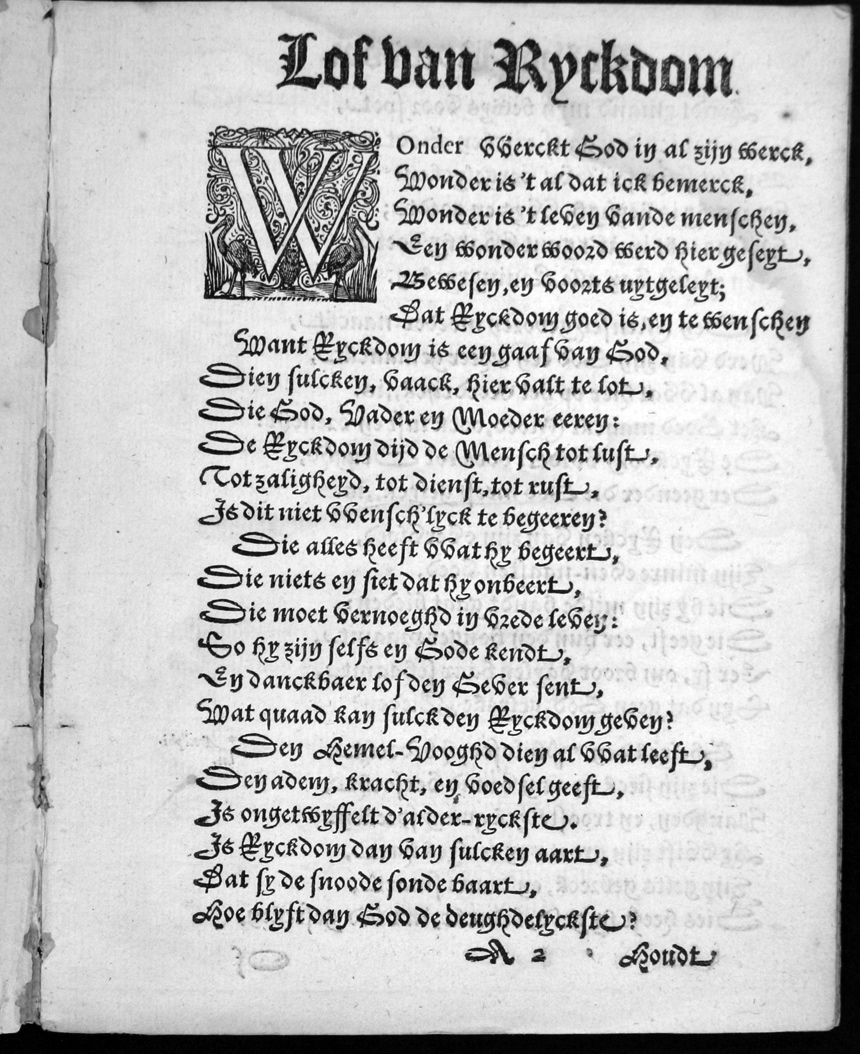 Lof van Ryckdom.
WOnder vverckt God in al zijn werck,
Wonder is 't al dat ick bemerck,
Wonder is 't leven vande menschen,
Een wonder woord werd hier geseyt,
Bewesen, en voorts uytgeleyt;
Dat Ryckdom goed is, en te wenschen
Want Ryckdom is een gaaf van God,
Dien sulcken, vaack, hier valt te lot,
Die God, Vader en Moeder eeren:
De Ryckdom dijd de Mensch tot lust,
Tot zaligheyd, tot dienst, tot rust,
Is dit niet vvensch'lyck te begeeren?
Die alles heeft vvat hy begeert,
Die niets en siet dat hy onbeert,
Die moet vernoeghd in vrede leven:
So hy zijn selfs en Gode kendt,
En danckbaer lof den Gever sent,
Wat quaad kan sulck den Ryckdom geven?
Den Hemel-Vooghd dien al vvat leeft,
Den adem, kracht, en voedsel geeft,
Is ongetwyffelt d'alder-ryckste.
Is Ryckdom dan van sulcken aart,
Dat sy de snoode sonde baart,
Hoe blyft dan God de deughdelyckste?
A 2 Houdt